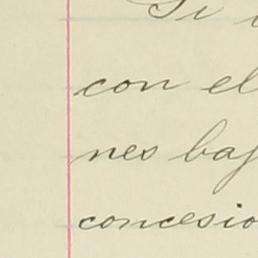 Si
con el
nes baj
concesio